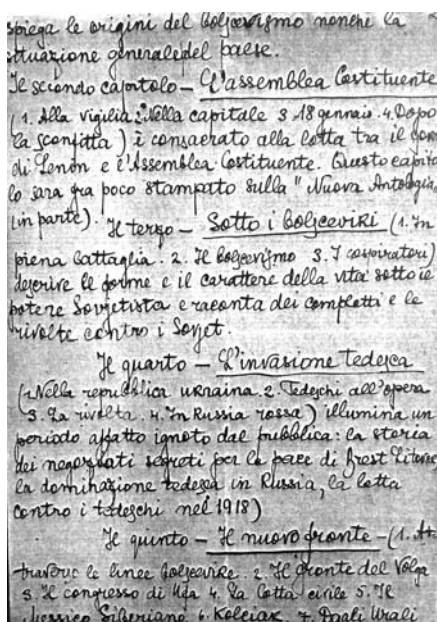 spiega le origini del bolscevismo nonchè la
situazione generale del paese.
Il secondo capitolo — L'assemblea Costituente
(1. Alla vigilia. 2. Nella capitale 3 18 gennaio. 4. Dopo
la sconfitta) è consacrato alla lotta tra il
di Lenin e l'Assemblea Costituente. Questo capito
lo sara fra poco stampato sulla "Nuova Antologia
(in parte). Il terzo — Sotto i bolsceviki (1. In
piena battaglia. 2. Il bolscevismo 3. I cospiratori)
descrive le forme e il carattere della vita sotto il
potere Sovjetista e raconta dei complotti e le
rivolte contro i Sovjet.
Il quarto — L'invasione tedesca
(1. Nella republica ukraina. 2. Tedeschi all'opera
3. La rivolta. 4. In Russia rossa) illumina un
periodo affatto ignoto dal pubblica: la storia
dei negoziati segreti per la pace di Brest Litovsc
la dominazione tedesca in Russia, la lotta
contro i tedeschi nel 1918)
Il quinto — Il nuovo fronte — (1. At
traverso le linee bolscevike. 2. Il fronte del Volga
3. Il congresso di Ufa 4. La lotta civile 5. Il
Messico Siberiano. 6. Kolciak. 7. Dagli Urali